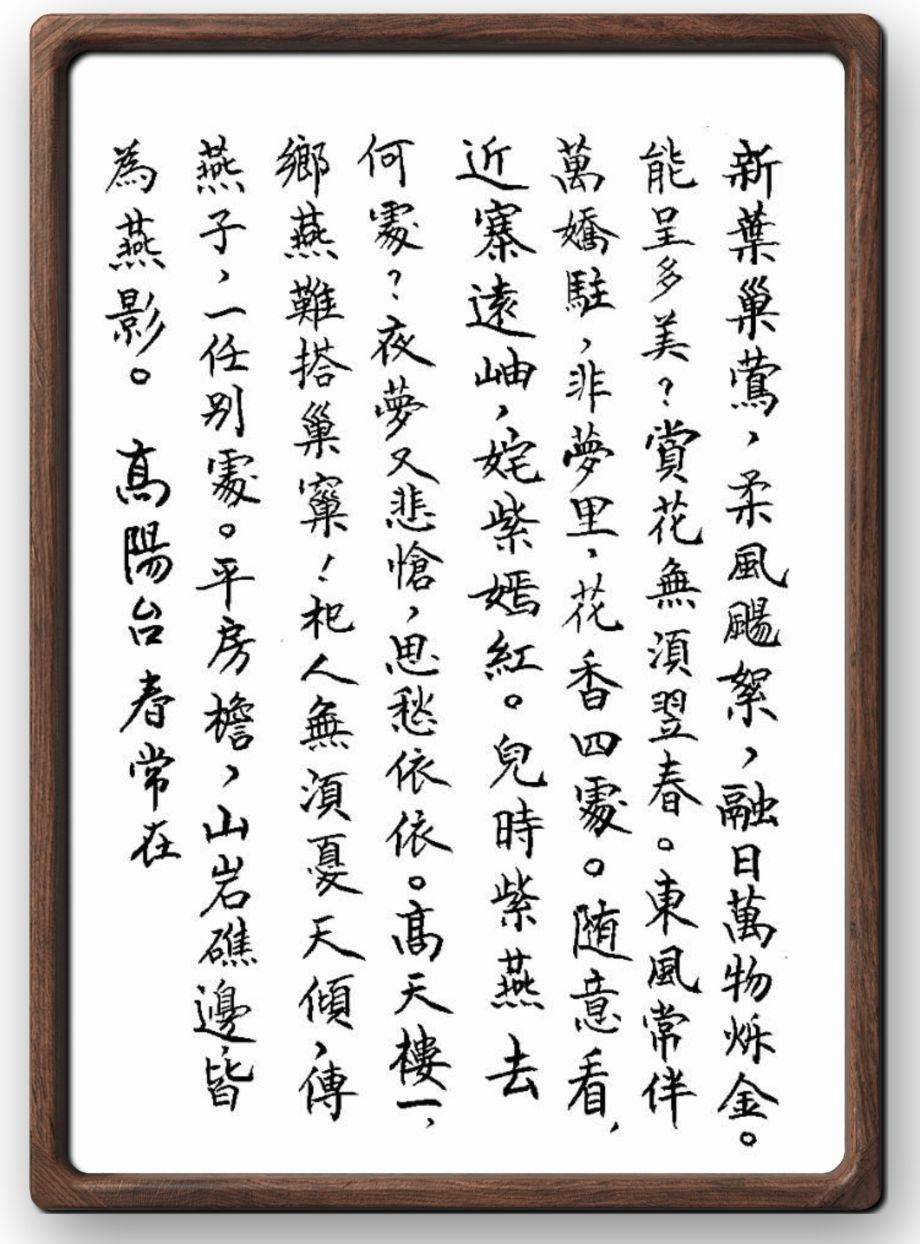 新葉巢鶯，柔風颺絮，融日萬物烁金。
能呈多美？賞花無須翌春。東風常伴
萬嬌駐，非夢里，花香四處。随意看，
近寨遠岫，姹紫嫣紅。兒時紫燕去
何處？夜夢又悲愴，思愁依依。高天樓一，
鄉燕難搭巢窠！杞人無須憂天傾，傳
燕子，一任别處。平房檐，山岩礁邊，皆
為燕影。高陽台春常在